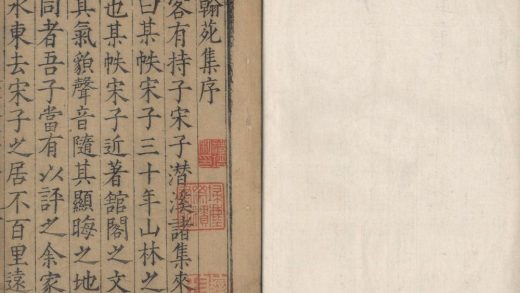 翰苑集序
客有持子宋子潛溪諸集來
曰某帙宋子三十年山林之
也某帙宋子近著舘閣之文
其氣貌聲音隨其顯晦之地
同者吾子當有以評之余家
水東去宋子之居不百里遠